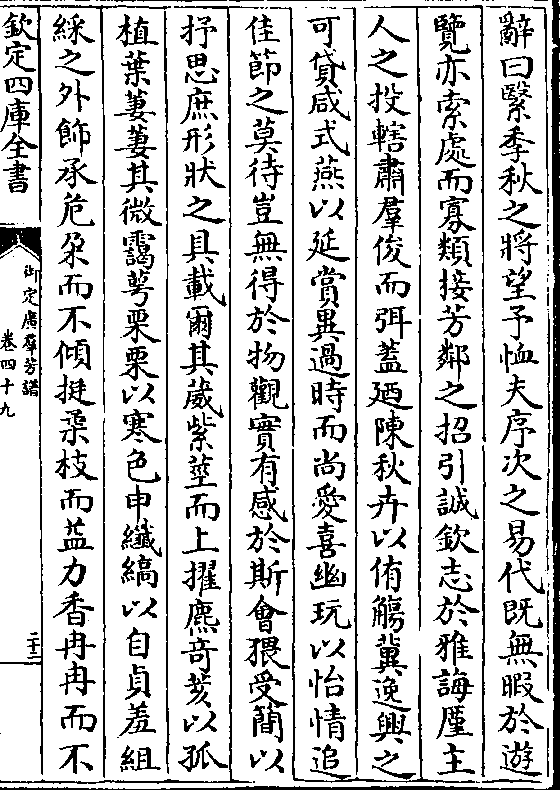 辭曰繄季秋之將望予恤夫序次之易代既無暇於遊
覽亦索處而寡類接芳鄰之招引誠欽志於雅誨廑主
人之投轄肅羣俊而弭蓋廼陳秋卉以侑觴冀逸興之
可貸咸式燕以延賞異過時而尚愛喜幽玩以怡情追
佳節之莫待豈無得於物觀實有感於斯會猥受簡以
抒思庶形狀之具載爾其葳紫莖而上擢麃奇荄以孤
植葉萋萋其微靄萼栗栗以寒色申纖縞以自貞羞組
綵之外飾承危朶而不傾挺柔枝而益力香冉冉而不
欽定四庫全書
御定廣羣芳譜
卷四十九
二十三